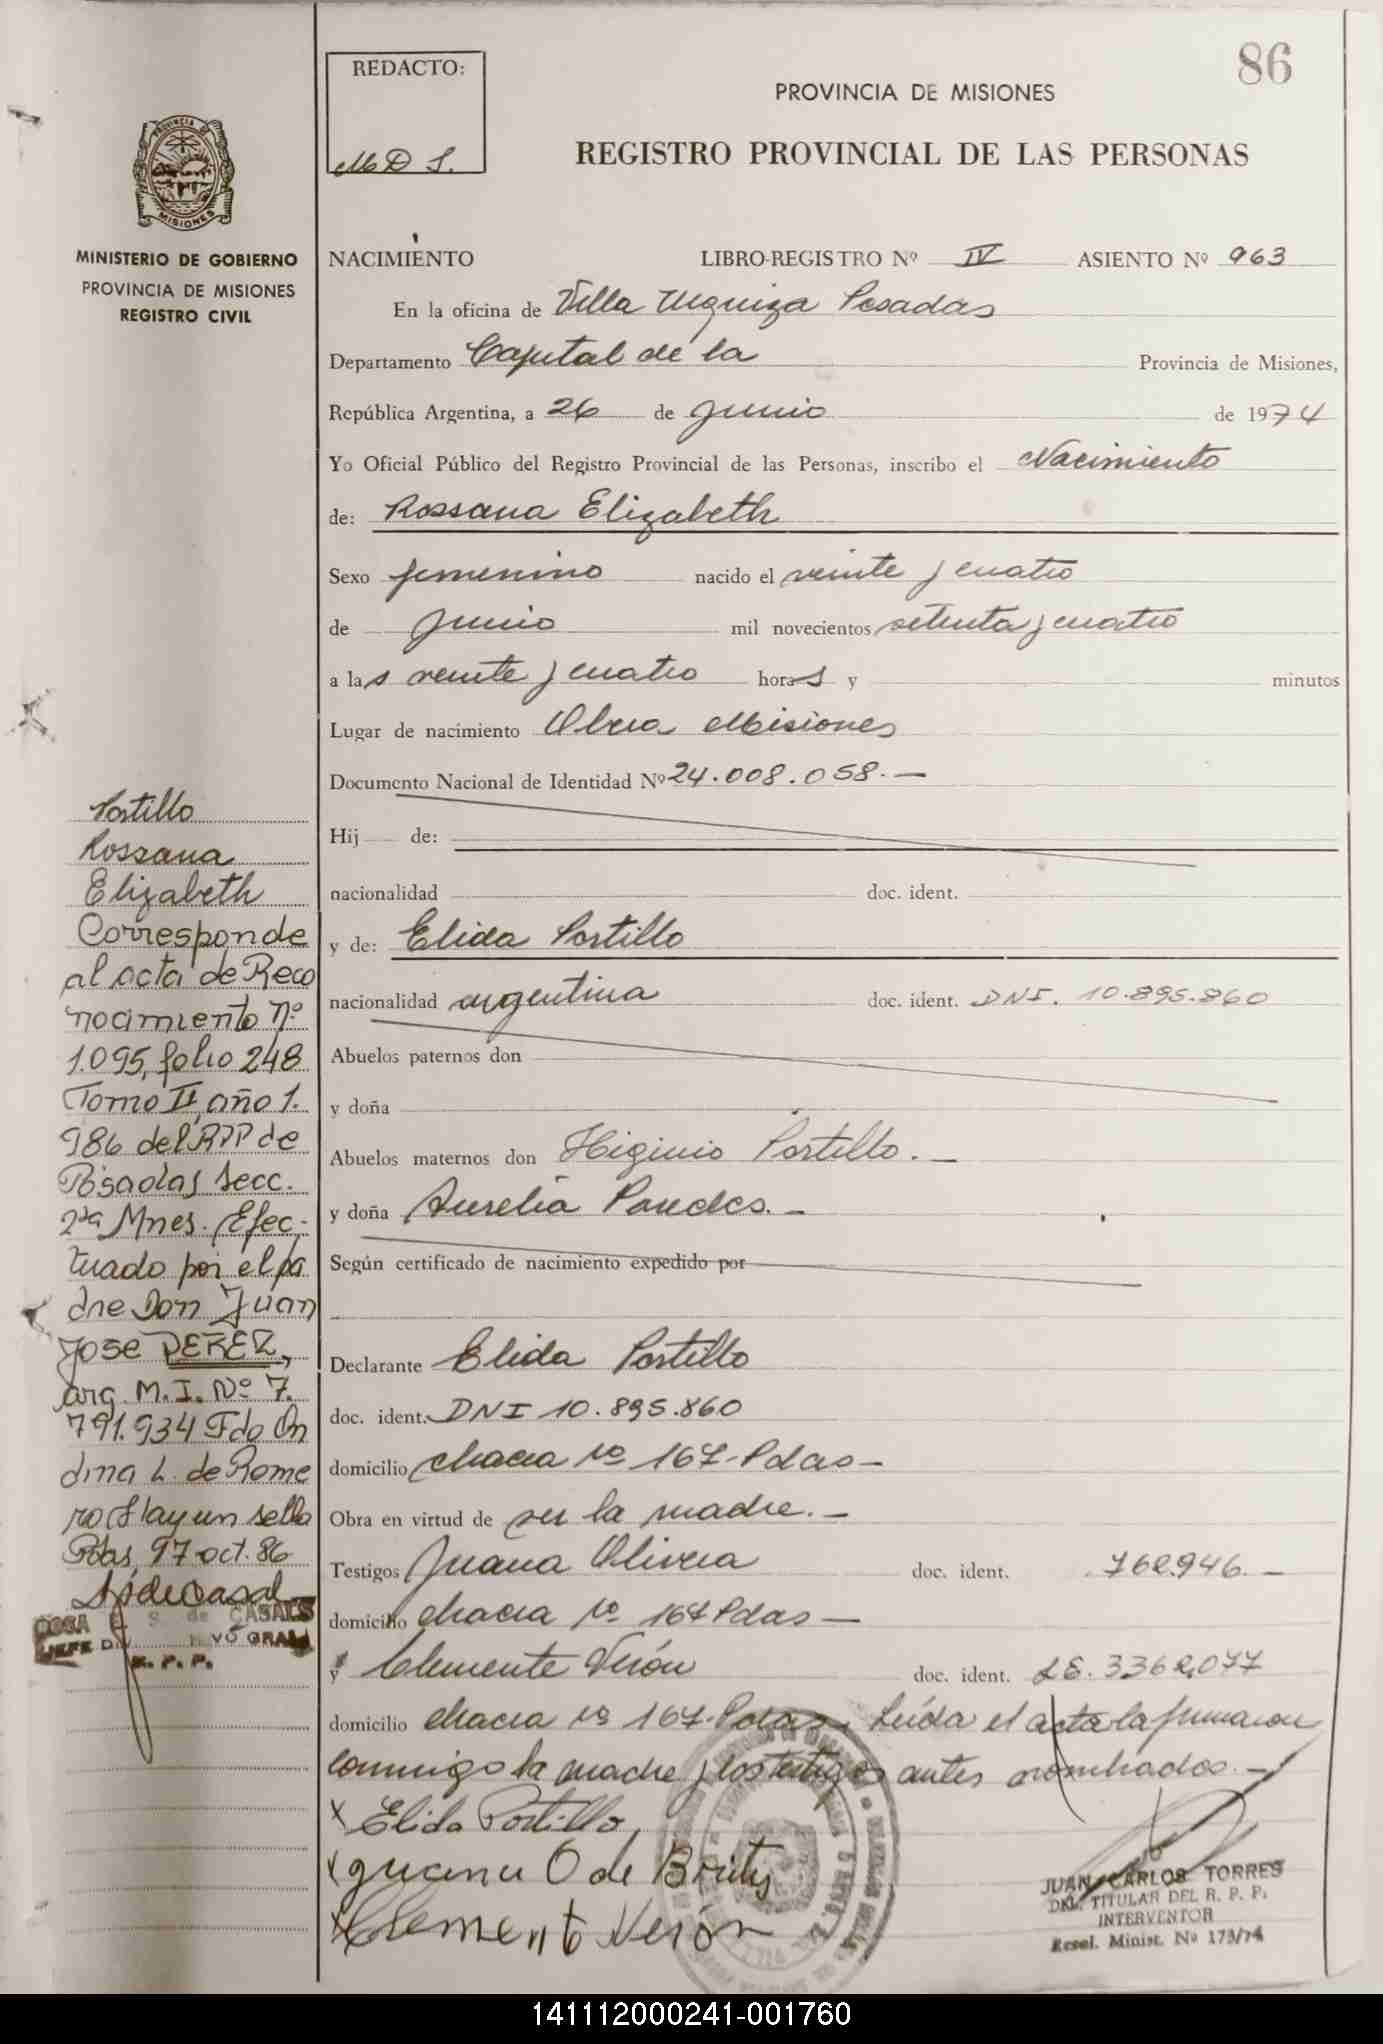 86
REDACTO:
M D S.
PROVINCIA DE MISIONES
REGISTRO PROVINCIAL DE LAS PERSONAS
PROVINCIA DE
MISIONES
MINISTERIO DE GOBIERNO
PROVINCIA DE MISIONES
REGISTRO CIVIL
NACIMIENTO LIBRO-REGISTRO Nº IV ASIENTO Nº 963
En la oficina de Villa Urquiza Posadas
Departamento Capital de la Provincia de Misiones,
República Argentina, a 26 de Junio de 1974
Yo Oficial Público del Registro Provincial de las Personas, inscribo el Nacimiento
de: Rossana Elizabeth
Sexo femenino nacido el veinte y cuatro
de Junio mil novecientos setenta y cuatro
a las veinte y cuatro horas y minutos
Lugar de nacimiento Obera Misiones
Documento Nacional de Identidad Nº 24.008.058.—
Hij de:
nacionalidad doc. ident.
y de: Elida Portillo
nacionalidad argentina doc. ident. DNI. 10.895.860
Abuelos paternos don
y doña
Abuelos maternos don Higinio Portillo.—
y doña Aurelia Paredes.—
Según certificado de nacimiento expedido por
Declarante Elida Portillo
doc. ident. DNI 10.895.860
domicilio chacra Nº 167-Pdas—
Obra en virtud de ser la madre.—
Testigos Juana Olivera doc. ident. 762.946.—
domicilio chacra Nº 167 Pdas—
y Clemente Verón doc. ident. LE. 3362,077
domicilio chacra Nº 167-Pdas. Leída el acta la firmaron
conmigo la madre y los testigos antes nombrados.—
x Elida Portillo
x Juana O de Britez
x Clemente Verón
JUAN CARLOS TORRES
DEL. TITULAR DEL R. P. P.
INTERVENTOR
Resol. Minist. Nº 173/74
Portillo
Rossana
Elizabeth
Corresponde
al acta de Reco
nocimiento nº
1.095, folio 248
Tomo II, año 1.
986 del RPP de
Posadas secc.
2da Mnes. Efec-
tuado por el pa
dre Don Juan
Jose PEREZ,
arg. M.I. Nº 7.
791.934 Fdo On
dina L. de Rome
ro Hay un sello
Pdas, 97 oct. 86
ROSA E S de CASALS
JEFE DIV GRAL
R. P. P.
141112000241-001760